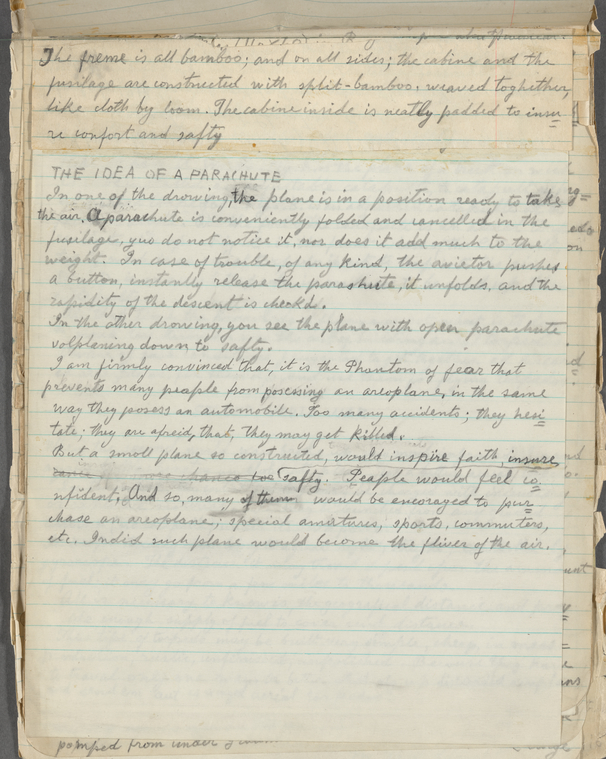 The freme is all bamboo; and on all sides; the cabine and the
fusilage are constructed with split-bamboo, weaved toghether,
like cloth by loom. The cabine inside is neatly padded to insu=
re confort and safty
THE IDEA OF A PARACHUTE
In one of the drowing, the plane is in a position ready to take
the air, A parachute is conveniently folded and cancelled in the
fusilage, you do not notice it, nor does it add much to the
weight. In case of trouble, of any kind, the avietor pushes
a button, instantly release the parashute, it unfolds, and the
rapidity of the descent is checkd.
In the other drowing, you see the plane with open parachute
volplaning down to safty.
I am firmly convinced that, it is the Phantom of fear that
prevents many peaple from posessing an areoplane, in the same
way they posess an automobile. Too many accidents; they hesi=
tate; they are afreid, that, they may get killed.
But a smoll plane so constructed, would inspire faith, insure
safty. Peaple would feel co=
nfident, And so, many of them would be encoraged to pur=
chase an areoplane; special amatures, sports, commuters,
etc. Indid such plane would become the fliver of the air.
pomped from under